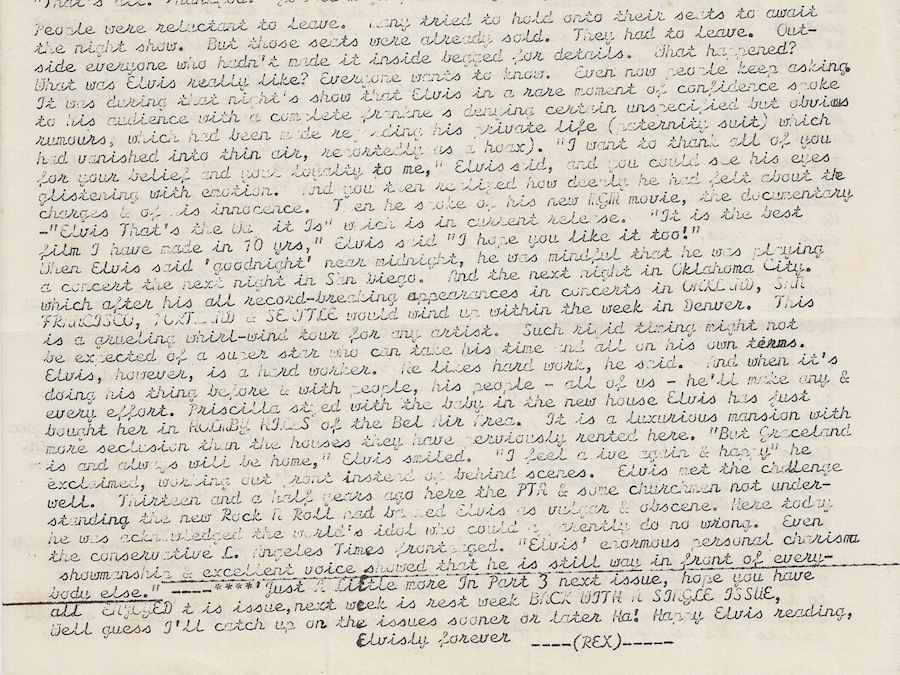 "That's all. Thankyou.
People were reluctant to leave. Many tried to hold onto their seats to await
the night show. But those seats were already sold. They had to leave. Out-
side everyone who hadn't made it inside begged for details. What happened?
What was Elvis really like? Everyone wants to know. Even now people keep asking.
It was during that night's show that Elvis in a rare moment of confidence spoke
to his audience with a complete s denying certain unspecified but obvious
rumours, which had been made regarding his private life (paternity suit) which
had vanished into thin air, reportedly as a hoax). "I want to thank all of you
for your belief and your loyalty to me," Elvis said, and you could see his eyes
glistening with emotion. And you then realized how deeply he had felt about the
charges & of his innocence. Then he spoke of his new MGM movie, the documentary
-"Elvis That's the Way it Is" which is in current release. "It is the best
film I have made in 10 yrs," Elvis said "I hope you like it too!"
When Elvis said 'goodnight' near midnight, he was mindful that he was playing
a concert the next night in San Diego. And the next night in Oklahoma City.
which after his all record-breaking appearances in concerts in OAKLAND, SAN
FRANCISCO, PORTLAND & SEATTLE would wind up within the week in Denver. This
is a grueling whirl-wind tour for any artist. Such rigid timing might not
be expected of a super star who can take his time and all on his own terms.
Elvis, however, is a hard worker. He likes hard work, he said. And when it's
doing his thing before & with people, his people - all of us - he'll make any &
every effort. Priscilla stayed with the baby in the new house Elvis has just
bought her in HOLMBY HILLS of the Bel Air Area. It is a luxurious mansion with
more seclusion than the houses they have perviously rented here. "But Graceland
is and always will be home," Elvis smiled. "I feel alive again & happy" he
exclaimed, working out front instead of behind scenes. Elvis met the challenge
well. Thirteen and a half years ago here the PTA & some churchmen not under-
standing the new Rock N Roll had Elvis as vulgar & obscene. Here today
he was acknowledged the world's idol who could apparently do no wrong. Even
the conservative L. Angeles Times frontpaged. "Elvis' enormous personal charisma
showmanship & excellent voice showed that he is still way in front of every-
body else." ----****'Just A Little more In Part 3 next issue, hope you have
all ENJOYED t is issue,next week is rest week BACK WITH A SINGLE ISSUE,
Well guess I'll catch up on the issues sooner or later Ha! Happy Elvis reading,
Elvisly forever ----(REX)-----